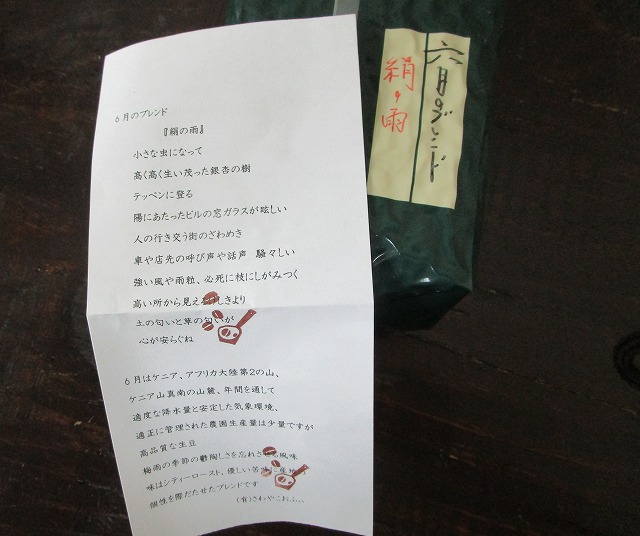 6月のブレンド
『絹の雨』
小さな虫になって
高く高く生い茂った銀杏の樹
テッペンに登る
陽にあたったビルの窓ガラスが眩しい
人の行き交う街のざわめき
車や店先の呼び声や話声 騒々しい
強い風や雨粒、必死に枝にしがみつく
高い所から見えるけしきより
土の匂いと草の匂いが
心が安らぐね
6月はケニア、アフリカ大陸第2の山、
ケニア山真南の山麓、年間を通して
適度な降水量と安定した気象環境、
適正に管理された農園生産量は少量ですが
高品質な生豆
梅雨の季節の鬱陶しさを忘れさせる風味
味はシティーロースト、優しい苦味に産地
個性を際だたせたブレンドです
(有)さわやこおふぃ
六月のブレンド
絹の雨